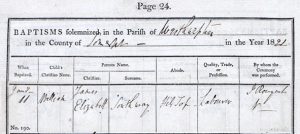 Page 24.
BAPTISMS solemnized in the Parish of
in the County of Somerset in the Year 1821
When Baptized. Child's Christian Name. Parents Name. Abode. Quality, Trade, or Profession. By whom the Ceremony was performed.
Christian. Surname.
11 William James Elizabeth Southway Labourer
No. 190.